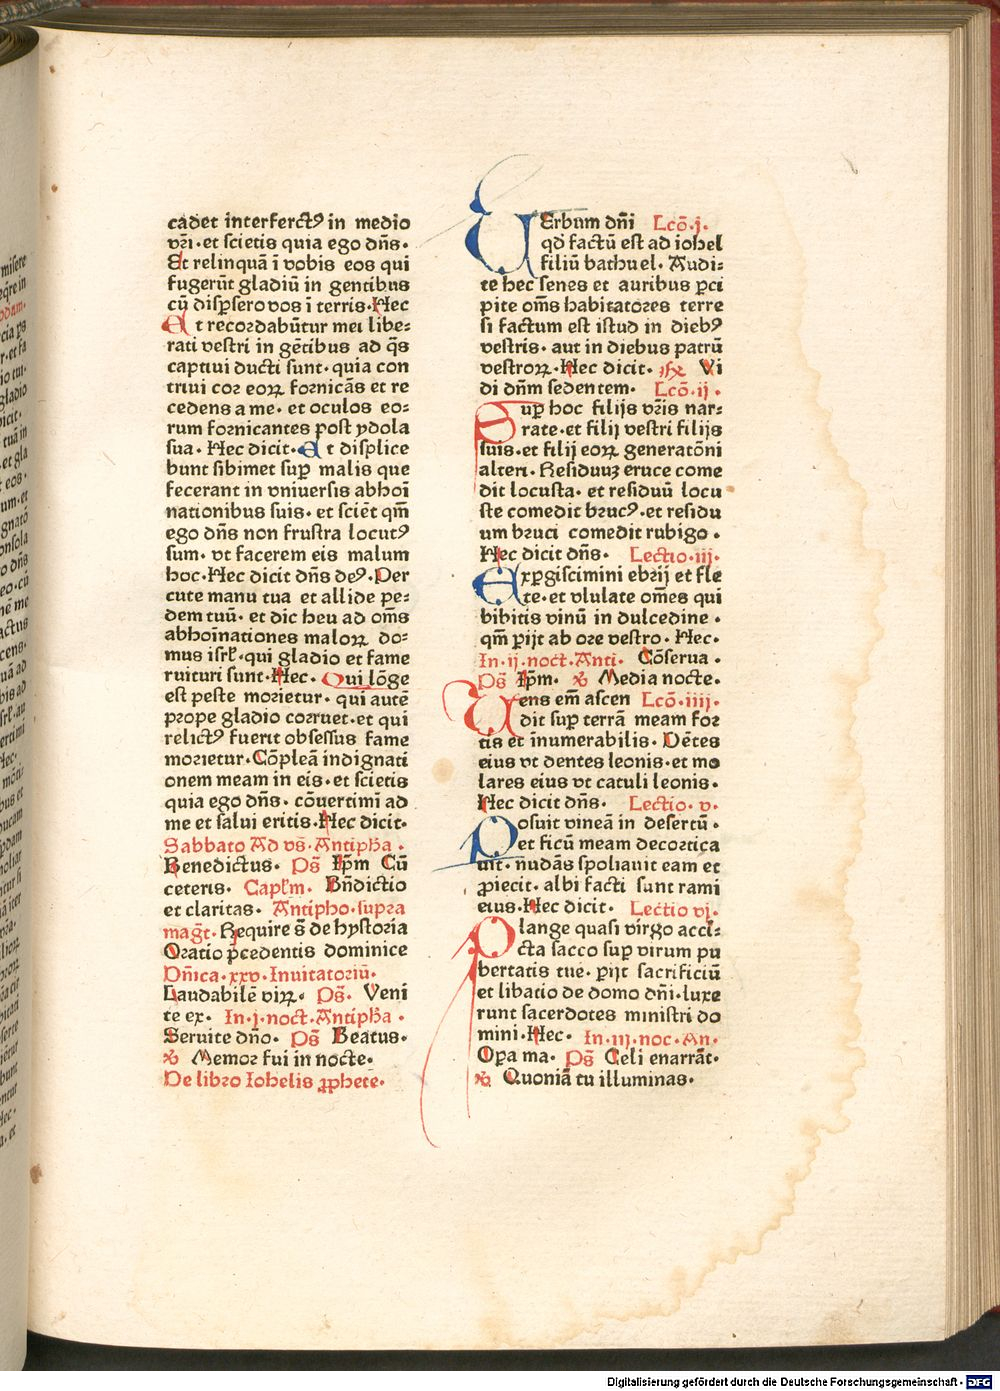 cadet interfectꝰ in medio
vr̄i · et scietis quia ego dn̄s ·
Et relinquā ī vobis eos qui
fugerūt gladiū in gentibus
cū dispsero vos ī terris · Hec
Et recordabūtur mei libe⸗
rati vestri in gētibus ad q̄s
captiui ducti sunt · quia con
triui cor eoꝝ fornicās et re
cedens a me · et oculos eo⸗
rum fornicantes post ydola
sua · Hec dicit · Et displice
bunt sibimet suꝑ malis que
fecerant in vniuersis abhoī
nationibus suis · et sciēt qm̄
ego dn̄s non frustra locutꝰ
sum · vt facerem eis malum
hoc · Hec dicit dn̄s deꝰ · Per
cute manu tua et allide pe⸗
dem tuū · et dic heu ad om̄s
abhoīnationes maloꝝ do⸗
mus isrł · qui gladio et fame
ruituri sunt · Hec · Qui lōge
est peste morietur · qui autē
prope gladio corruet · et qui
relictꝰ fuerit obsessus fame
morietur · Cōpleā indignati
onem meam in eis · et scietis
quia ego dn̄s · cōuertimī ad
me et salui eritis · Hec dicit ·
Sabbato Ad vs̄ · Antipha ·
Benedictus · Ps̄ Ip̄m Cū
ceteris · Capłm · Bn̄dictio
et claritas · Antipho · supra
magt̄ · Require s̄ de hystoria
Oratio p̄cedentis dominice
Dn̄ica · xxv · Inuitatoriū ·
Laudabilē viꝝ · Ps̄ · Veni
te ex · In · j · noct · Antipha ·
Seruite dn̄o · Ps̄ Beatus ·
℣ Memor fui in nocte ·
De libro Iohelis ꝓphete ·
VErbum dn̄i Lcō · j ·
qd̄ factū est ad iohel
filiū bathuel · Audi⸗
te hec senes et auribus ꝑci
pite om̄s habitatores terre
si factum est istud in diebꝰ
vestris · aut in diebus patrū
vestroꝝ · Hec dicit · ℟ Vi
di dn̄m sedentem · Lcō · ij ·
Suꝑ hoc filijs vr̄is nar⸗
rate · et filij vestri filijs
suis · et filij eoꝝ generatōni
alteri · Residuuꝫ eruce come
dit locusta · et residuū locu
ste comedit brucꝰ · et residu
um bruci comedit rubigo ·
Hec dicit dn̄s · Lectio · iij ·
Exꝑgiscimini ebrij et fle
te · et vlulate om̄es qui
bibitis vinū in dulcedine ·
qm̄ ꝑijt ab ore vestro · Hec ·
In · ij · noct · Anti · Cōserua ·
Ps̄ Ip̄m · ℣ Media nocte ·
Gens em̄ ascen Lcō · iiij ·
dit suꝑ terrā meam for
tis et īnumerabilis · Dētes
eius vt dentes leonis · et mo
lares eius vt catuli leonis ·
Hec dicit dn̄s · Lectio · v ·
Posuit vineā in desertū ·
et ficū meam decortica
uit · nudās spoliauit eam et
ꝓiecit · albi facti sunt rami
eius · Hec dicit · Lectio vj ·
Plange quasi virgo acci⸗
cta sacco suꝑ virum pu
bertatis tue · ꝑijt sacrificiū
et libatio de domo dn̄i · luxe
runt sacerdotes ministri do
mini · Hec · In · iij · noc · An ·
Oꝑa ma · Ps̄ Celi enarrāt ·
℣ Quoniā tu illuminas ·
Digitalisierung gefördert durch die Deutsche Forschungsgemeinschaft · DFG